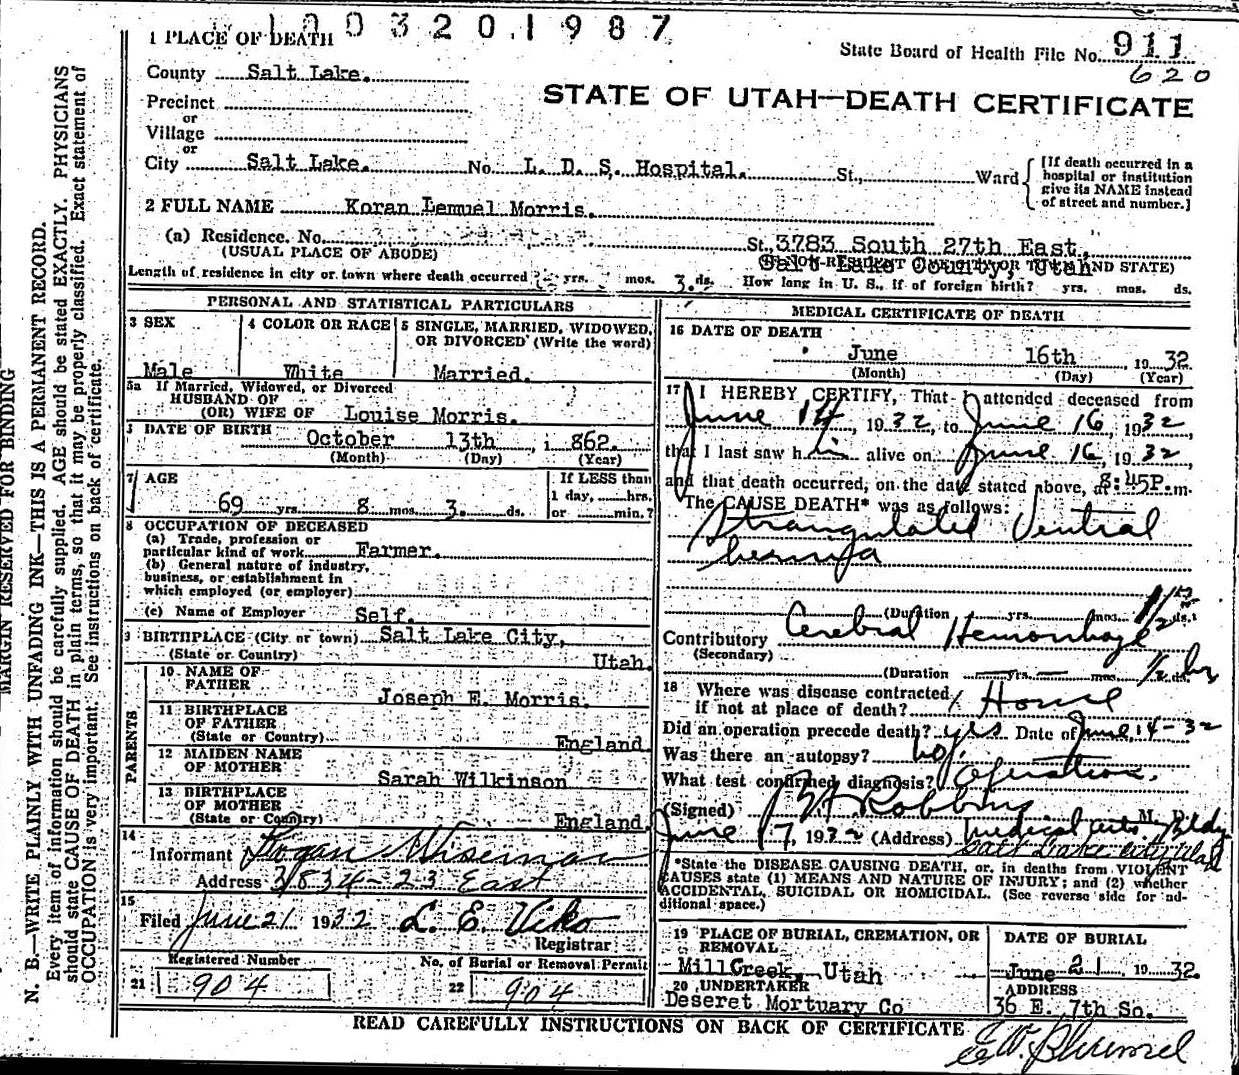 1003201987
1 PLACE OF DEATH
State Board of Health File No. 911
620
County Salt Lake.
STATE OF UTAH—DEATH CERTIFICATE
Precinct
or
Village
or
City Salt Lake. No. L. D. S. Hospital. St., Ward
[If death occurred in a
hospital or institution
give its NAME instead
of street and number.]
2 FULL NAME Koran Lemuel Morris.
(a) Residence. No. St. 3783 South 27th East,
(USUAL PLACE OF ABODE) Salt Lake County, Utah
Length of residence in city or town where death occurred yrs. mos. 3 ds. How long in U. S., if of foreign birth? yrs. mos. ds.
PERSONAL AND STATISTICAL PARTICULARS
3 SEX 4 COLOR OR RACE 5 SINGLE, MARRIED, WIDOWED,
OR DIVORCED (Write the word)
Male White Married.
5a If Married, Widowed, or Divorced
HUSBAND OF
(OR) WIFE OF Louise Morris.
DATE OF BIRTH October 13th, 1862.
(Month) (Day) (Year)
7 AGE If LESS than
1 day, hrs.
69 yrs. 8 mos. 3. ds. or min.?
8 OCCUPATION OF DECEASED
(a) Trade, profession or
particular kind of work Farmer.
(b) General nature of industry,
business, or establishment in
which employed (or employer)
(c) Name of Employer Self.
9 BIRTHPLACE (City or town) Salt Lake City,
(State or Country) Utah.
PARENTS
10 NAME OF
FATHER Joseph E. Morris.
11 BIRTHPLACE
OF FATHER
(State or Country) England.
12 MAIDEN NAME
OF MOTHER Sarah Wilkinson
13 BIRTHPLACE
OF MOTHER
(State or Country) England.
14
Informant Logan Wiseman
Address 3834 - 23 East
15
Filed June 21 1932 L. E. Viko
Registrar
Registered Number No. of Burial or Removal Permit
21 904 22 904
MEDICAL CERTIFICATE OF DEATH
16 DATE OF DEATH
June 16th, 1932.
(Month) (Day) (Year)
17 I HEREBY CERTIFY, That I attended deceased from
June 14, 1932, to June 16, 1932,
that I last saw him alive on June 16, 1932,
and that death occurred, on the date stated above, at 8:45P.m.
The CAUSE DEATH* was as follows:
Strangulated Ventral
hernia
(Duration yrs. mos. ds.
Contributory Cerebral Hemorrhage
(Secondary)
(Duration yrs. mos. 1/2 ds.
18 Where was disease contracted
if not at place of death? Home
Did an operation precede death? yes. Date of June 14-32
Was there an autopsy? no.
What test confirmed diagnosis? Operation.
(Signed) Robbins M. D.
June 17, 1932 (Address) Medical Arts. Bldg
Salt Lake City Utah
*State the DISEASE CAUSING DEATH, or, in deaths from VIOLENT
CAUSES state (1) MEANS AND NATURE OF INJURY; and (2) whether
ACCIDENTAL, SUICIDAL OR HOMICIDAL. (See reverse side for ad-
ditional space.)
19 PLACE OF BURIAL, CREMATION, OR
REMOVAL
Mill Creek, Utah
DATE OF BURIAL
June 21, 1932.
20 UNDERTAKER
Deseret Mortuary Co
ADDRESS
36 E. 7th So.
READ CAREFULLY INSTRUCTIONS ON BACK OF CERTIFICATE
MARGIN RESERVED FOR BINDING
N. B.—WRITE PLAINLY WITH UNFADING INK—THIS IS A PERMANENT RECORD.
Every item of information should be carefully supplied. AGE should be stated EXACTLY. PHYSICIANS
should state CAUSE OF DEATH in plain terms, so that it may be properly classified. Exact statement of
OCCUPATION is very important. See instructions on back of certificate.